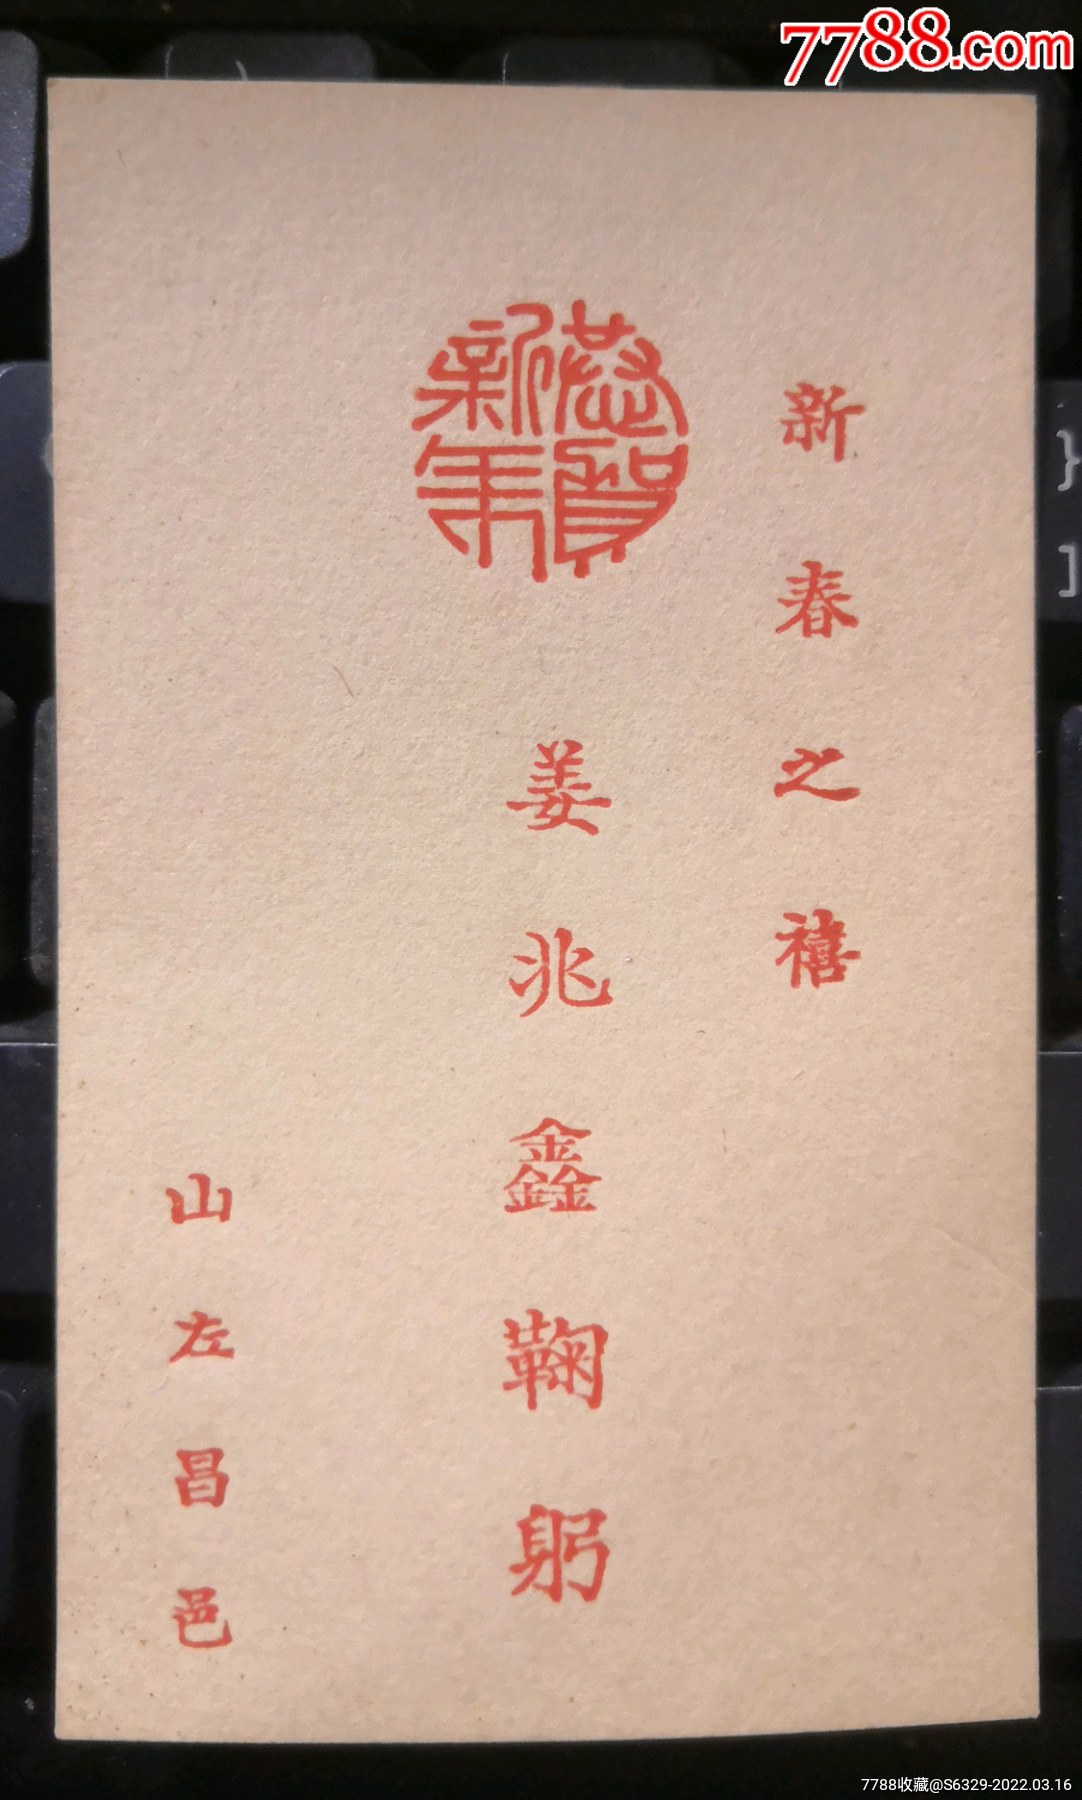 7788.com
新春之禧
恭賀新年
姜兆鑫鞠躬
山左昌邑
}
]
7788收藏@S6329-2022.03.16